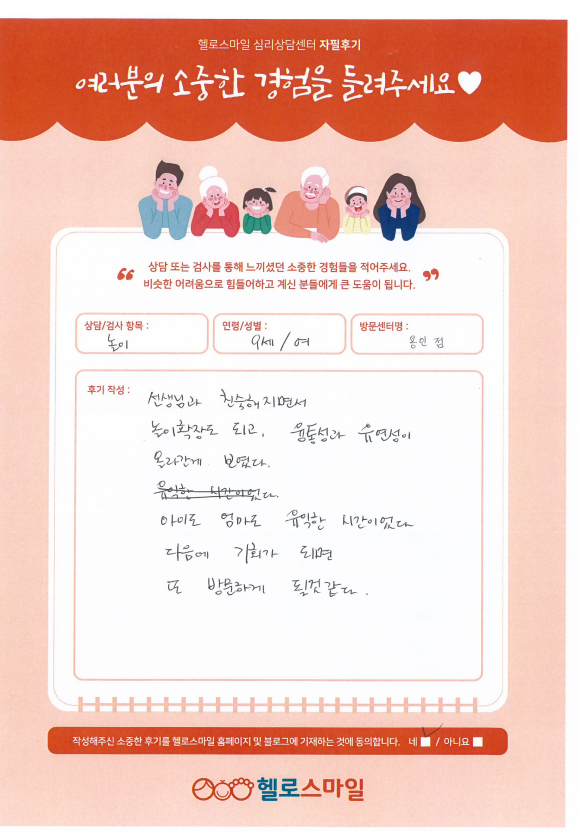 헬로스마일 심리상담센터 자필후기
여러분의 소중한 경험을 들려주세요♥
상담 또는 검사를 통해 느끼셨던 소중한 경험들을 적어주세요.
비슷한 어려움으로 힘들어하고 계신 분들에게 큰 도움이 됩니다.
상담/검사 항목 : 놀이
연령/성별 : 9세 / 여
방문센터명 : 용인 점
후기 작성 :
선생님과 친숙해지면서
놀이확장도 되고, 융통성과 유연성이
올라간게 보였다.
유익한 시간이었다.
아이도 엄마도 유익한 시간이었다
다음에 기회가 되면
또 방문하게 될것같다.
작성해주신 소중한 후기를 헬로스마일 홈페이지 및 블로그에 기재하는 것에 동의합니다. 네 / 아니요
헬로스마일